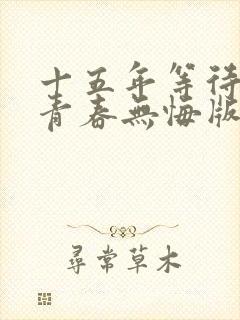 十五年等待
青春無悔版
尋常草木